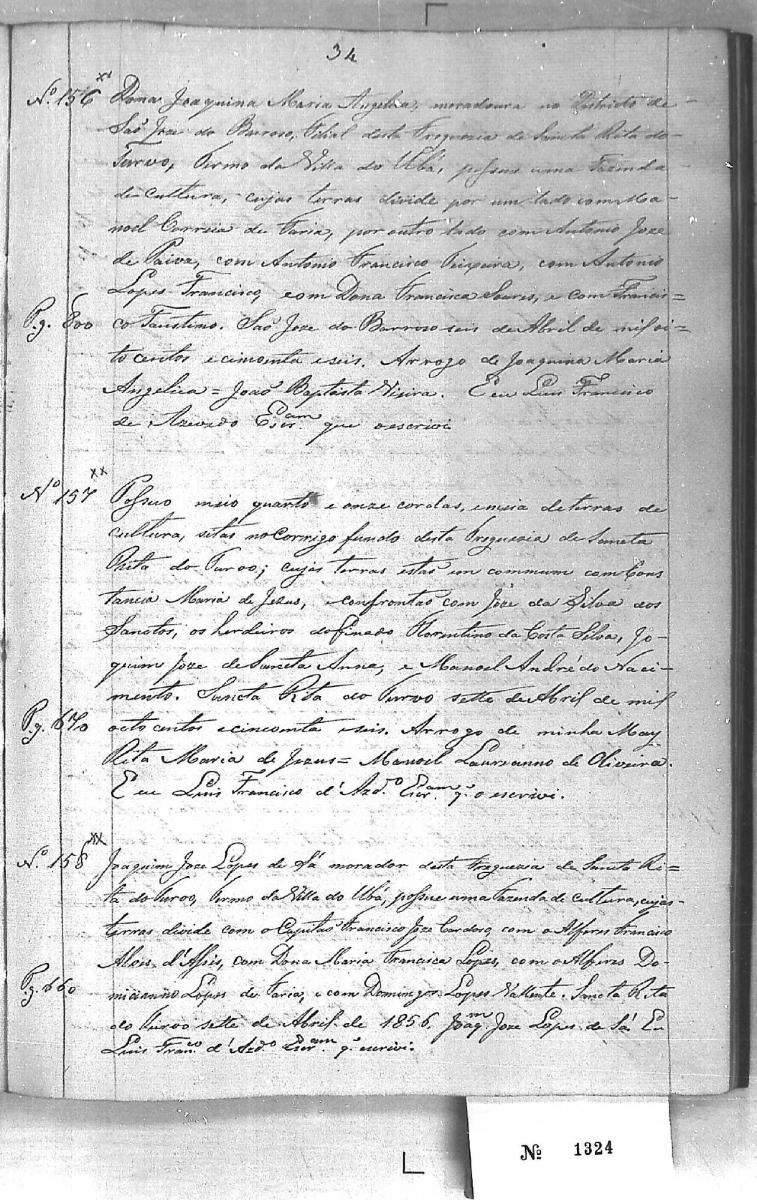 34
Nº 156 xx Dona Joaquina Maria Angelica, moradoura no Districto de
Saõ Joze do Barroso, Filial desta Freguezia de Sancta Rita do
Turvo, Termo da Villa do Ubá, possue uma Fazenda
de cultura, cujas terras divide por um lado com Ma=
noel Correia de Faria, por outro lado com Antonio Joze
de Paiva, com Antonio Francisco Teixeira, com Antonio
Lopes Francisco, e com Dona Francisca Soares, e com Francis=
Pg. 800 co Faustino. Saõ Joze do Barrozo seis de Abril de mil oi=
to centos e cincoenta e seis. Arrogo de Joaquina Maria
Angelica = Joaõ Baptista Vieira. E eu Luis Francisco
de Azevedo Escr.am que o escrivi
Nº 157 xx Possuo meio quarto e onze cordas, e meia de terras de
cultura, sitas no Corrigo fundo desta Freguezia de Sancta
Rita do Turvo; cujas terras estaõ em commum com Cons
tancia Maria de Jezus, confrontaõ com Joze da Silva dos
Sanctos, os herdeiros do finado Florentino da Costa Silva, Jo-
quim Joze de Sancta Anna, e Manoel André do Naci-
mento. Sancta Rita do Turvo sette de Abril de mil
Pg. 670 octo centos e cincoenta e seis. Arrogo de minha May
Rita Maria de Jezus = Manoel Laureanno de Oliveira.
E eu Luis Francisco d'Azd.º Escr.am q' o escrivi.
Nº 158 xx Joaquim Joze Lopes de Sá morador desta Freguezia de Sancta Ri=
ta do Turvo, Termo da Villa do Ubá, possue uma Fazenda de cultura, cujas
terras divide com o Capitaõ Francisco Joze Cardoso, com o Alferes Francisco
Alvis d'Assis, com Dona Maria Francisca Lopes, com o Alferes Do=
Pg. 660 micianno Lopes de Faria, e com Domingos Lopes Vallente. Sancta Rita
do Turvo sette de Abril de 1856. Joaq.m Joze Lopes de Sá Eu
Luis Fran.co d'Azd.º Escr.am q' escrivi.
Nº 1324